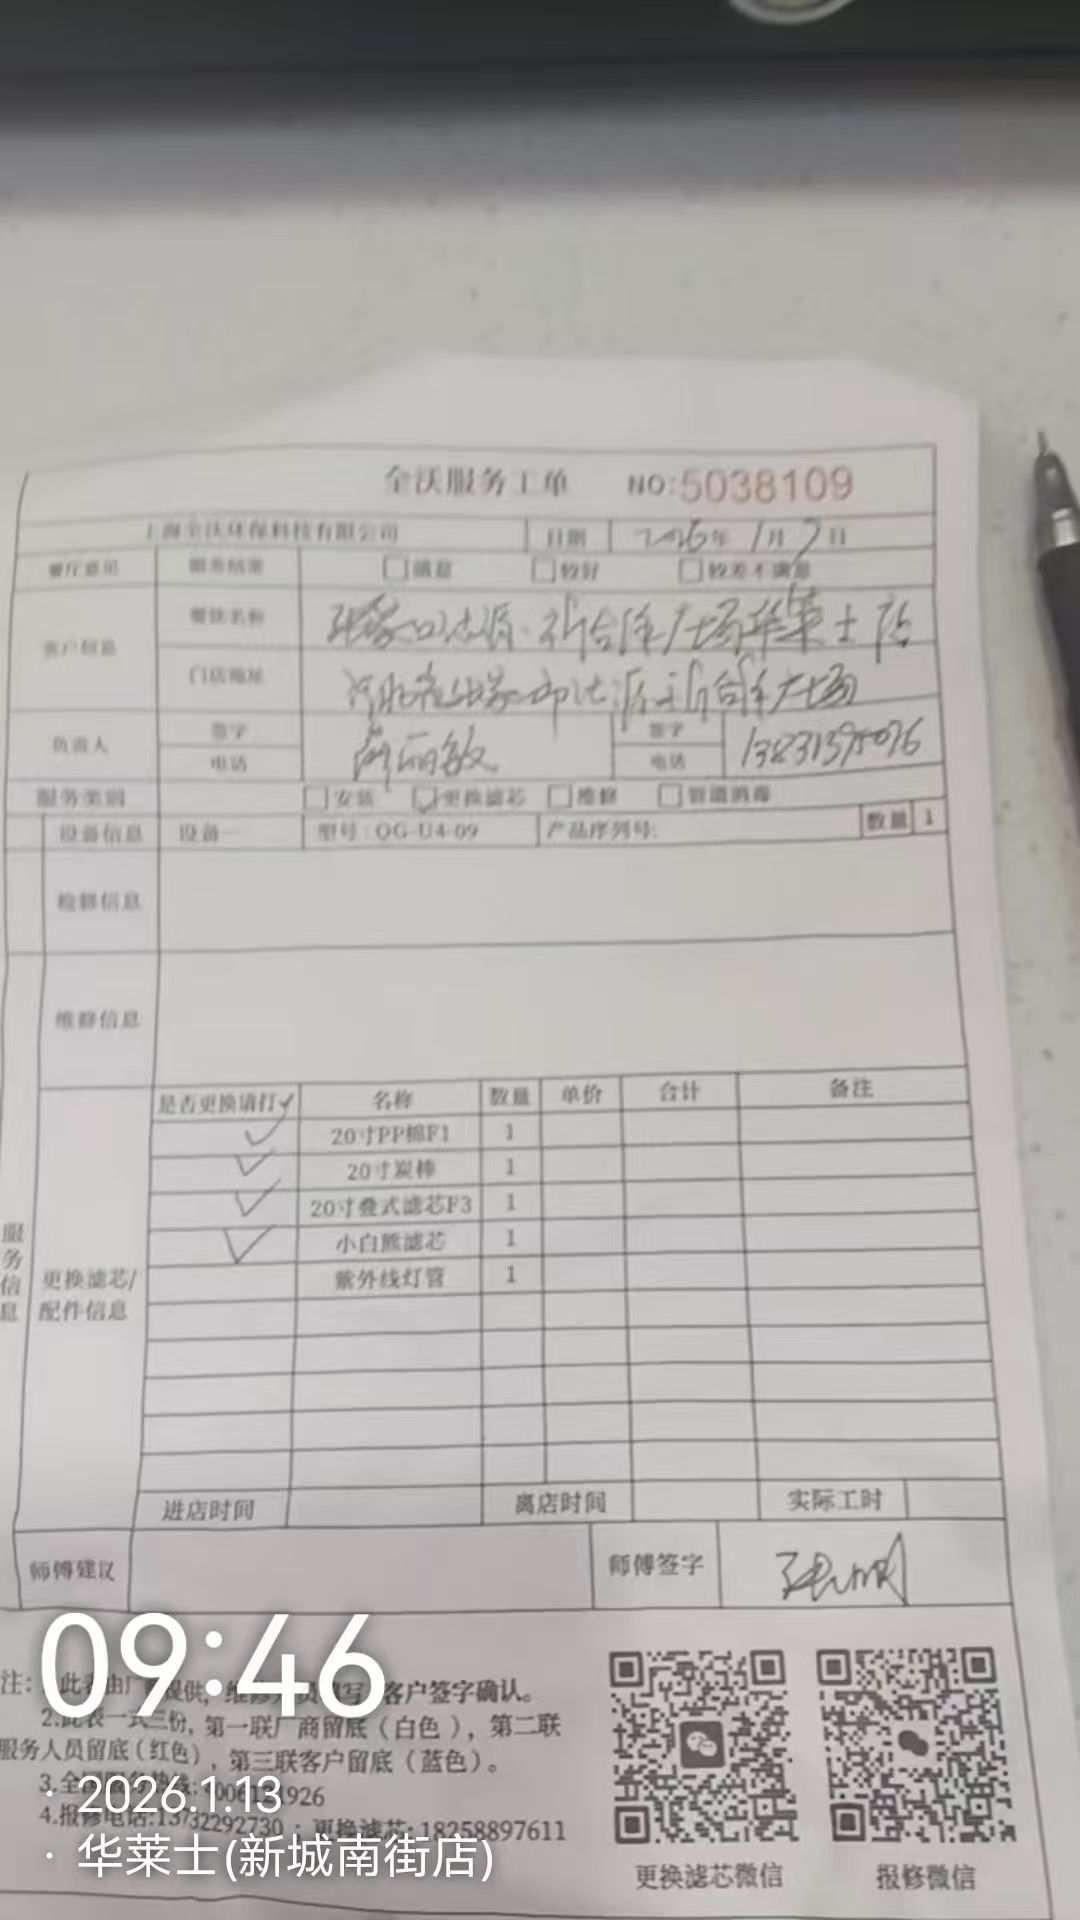 全沃服务工单 NO:5038109
上海全沃环保科技有限公司 日期 2026年1月7日
餐厅意见 服务结果 满意 较好 较差不满意
客户信息 餐饮名称 张家口沽源·新合作广场华莱士店
门店地址 河北省张家口沽源新合作广场
负责人 签字 丽敏 签字
电话 电话
服务类别 安装 更换滤芯 维修 管道消毒
设备信息 设备一 型号:QG-U4-09 产品序列号: 数量 1
检修信息
维修信息
是否更换请打✓ 名称 数量 单价 合计 备注
✓ 20寸PP棉F1 1
✓ 20寸炭棒 1
✓ 20寸叠式滤芯F3 1
✓ 小白熊滤芯 1
紫外线灯管 1
服务信息
更换滤芯/
配件信息
进店时间 离店时间 实际工时
师傅建议 师傅签字
09:46
注: 此表由厂 提供, 维修 员填写 客户签字确认。
2.此表一式三份, 第一联厂商留底(白色), 第二联
服务人员留底(红色), 第三联客户留底(蓝色)。
3.全国服务热线: 1926
2026.1.13
4.报修电话:13732292730 : 更换滤芯: 18258897611
华莱士(新城南街店)
更换滤芯微信 报修微信